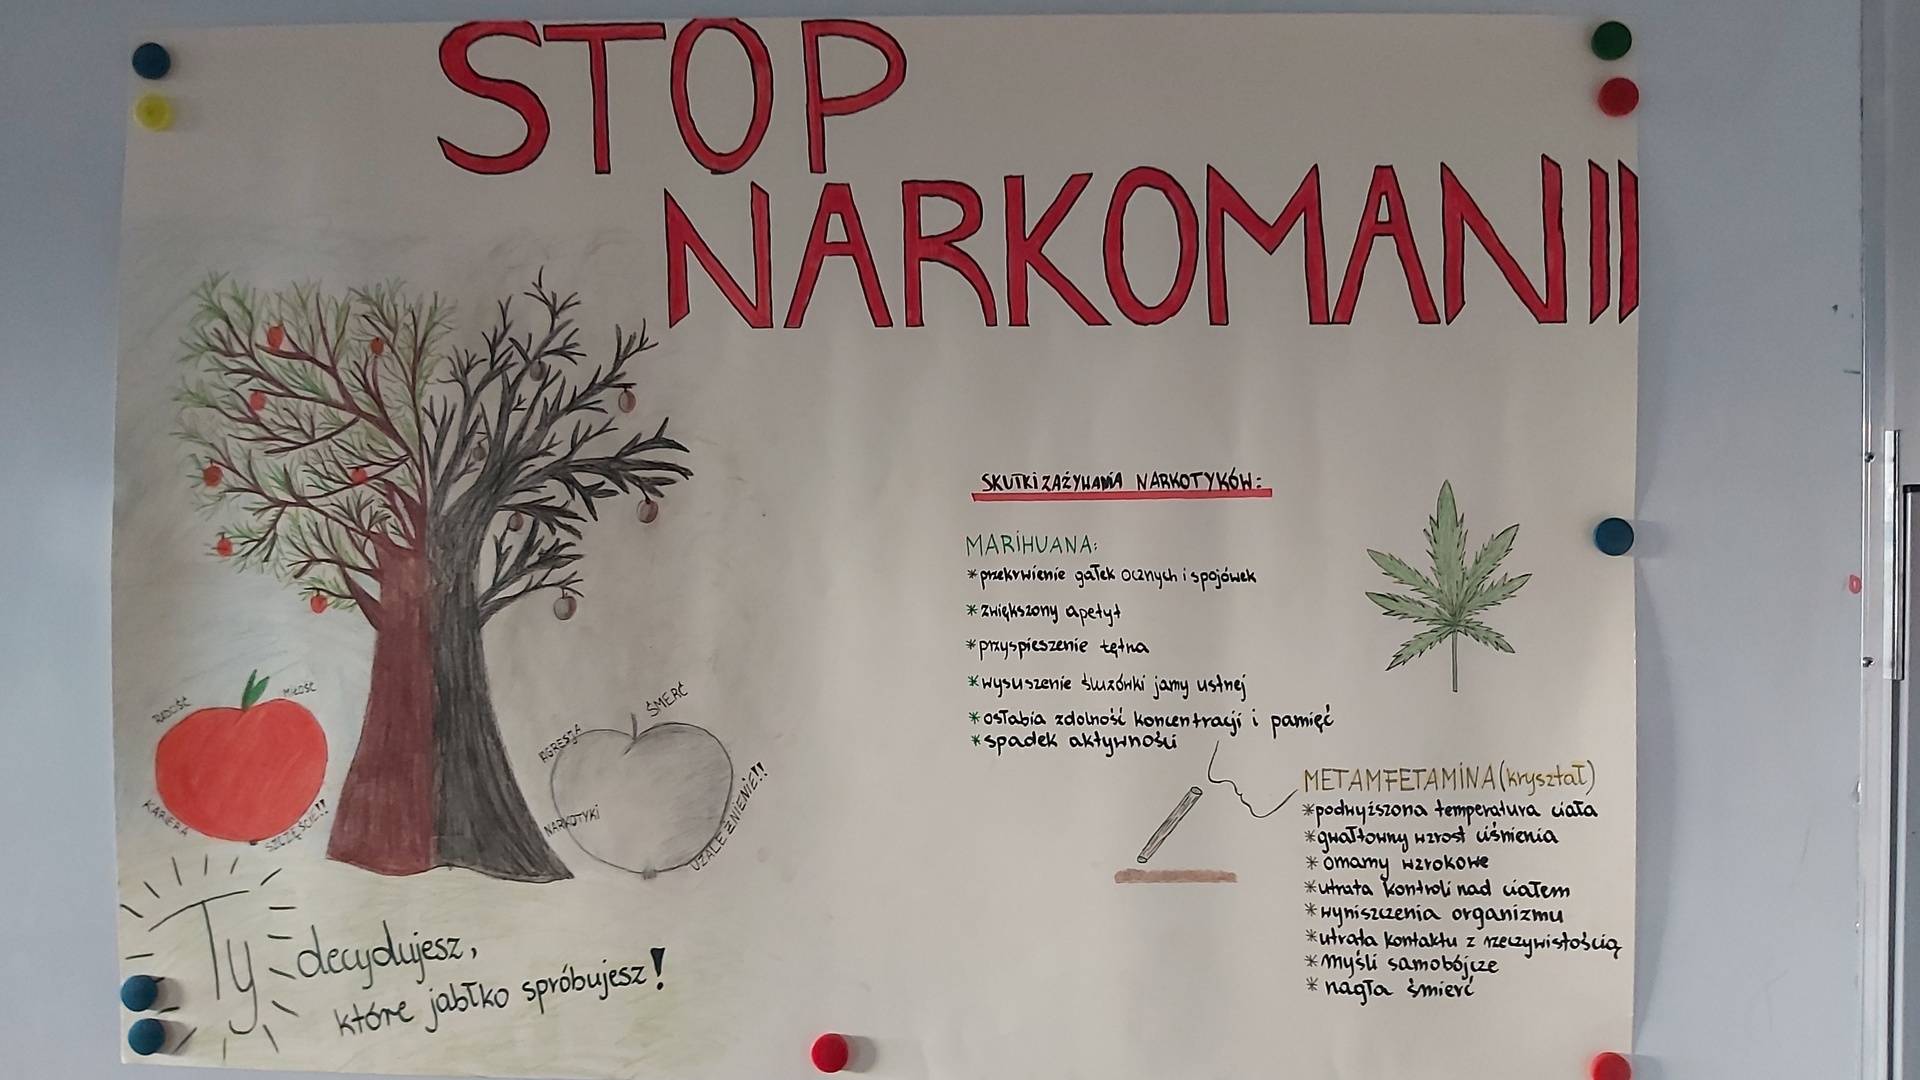 STOP
NARKOMANII
SKUTKI ZAŻYWANIA NARKOTYKÓW:
MARIHUANA:
*przekrwienie gałek ocznych i spojówek
*zwiększony apetyt
*przyspieszenie tętna
*wysuszenie śluzówki jamy ustnej
*osłabia zdolność koncentracji i pamięć
*spadek aktywności
METAMFETAMINA (kryształ)
*podwyższona temperatura ciała
*gwałtowny wzrost ciśnienia
*omamy wzrokowe
*utrata kontroli nad ciałem
*wyniszczenia organizmu
*utrata kontaktu z rzeczywistością
*myśli samobójcze
*nagła śmierć
RADOŚĆ
MIŁOŚĆ
KARIERA
SZCZĘŚCIE!!
AGRESJA
ŚMERĆ
NARKOTYKI
UZALEŻNIENIE!!
Ty decydujesz,
które jabłko spróbujesz!